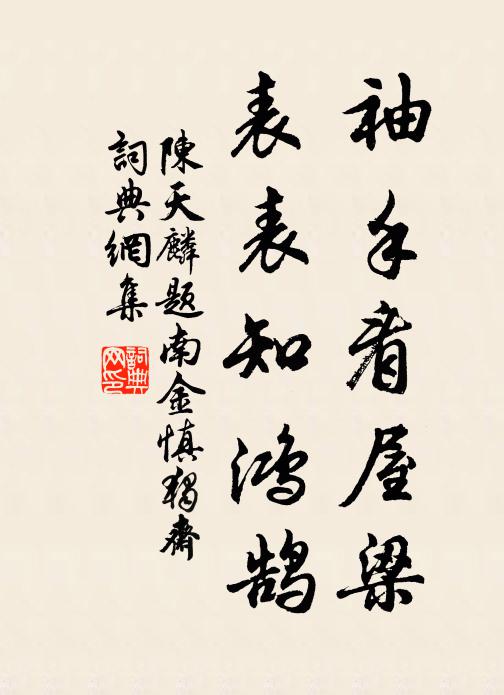 袖手看屋梁
表表知鸿鹄
陳天麟题南金慎獨齋
詞典網集
詞典网印